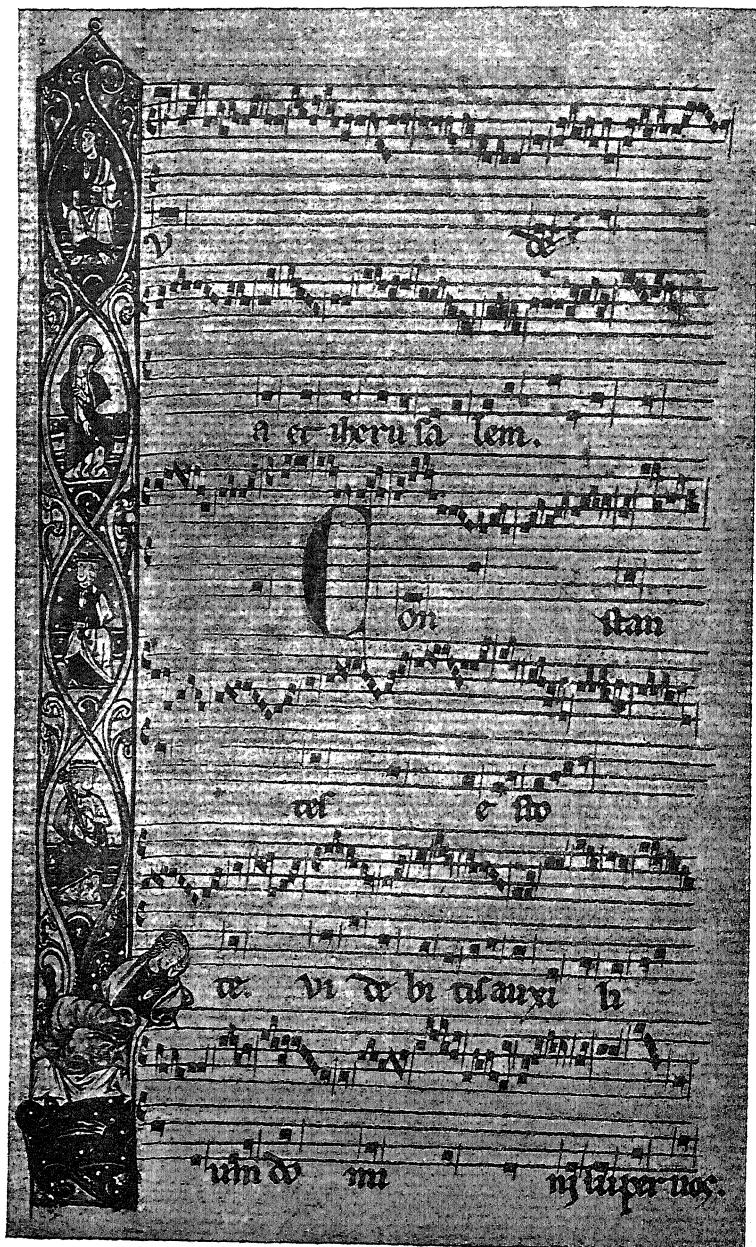 V de
a et iherusa lem.
Con stan
tes e sto
te. vi de bi tis auxi li
um do mi nj super uos.